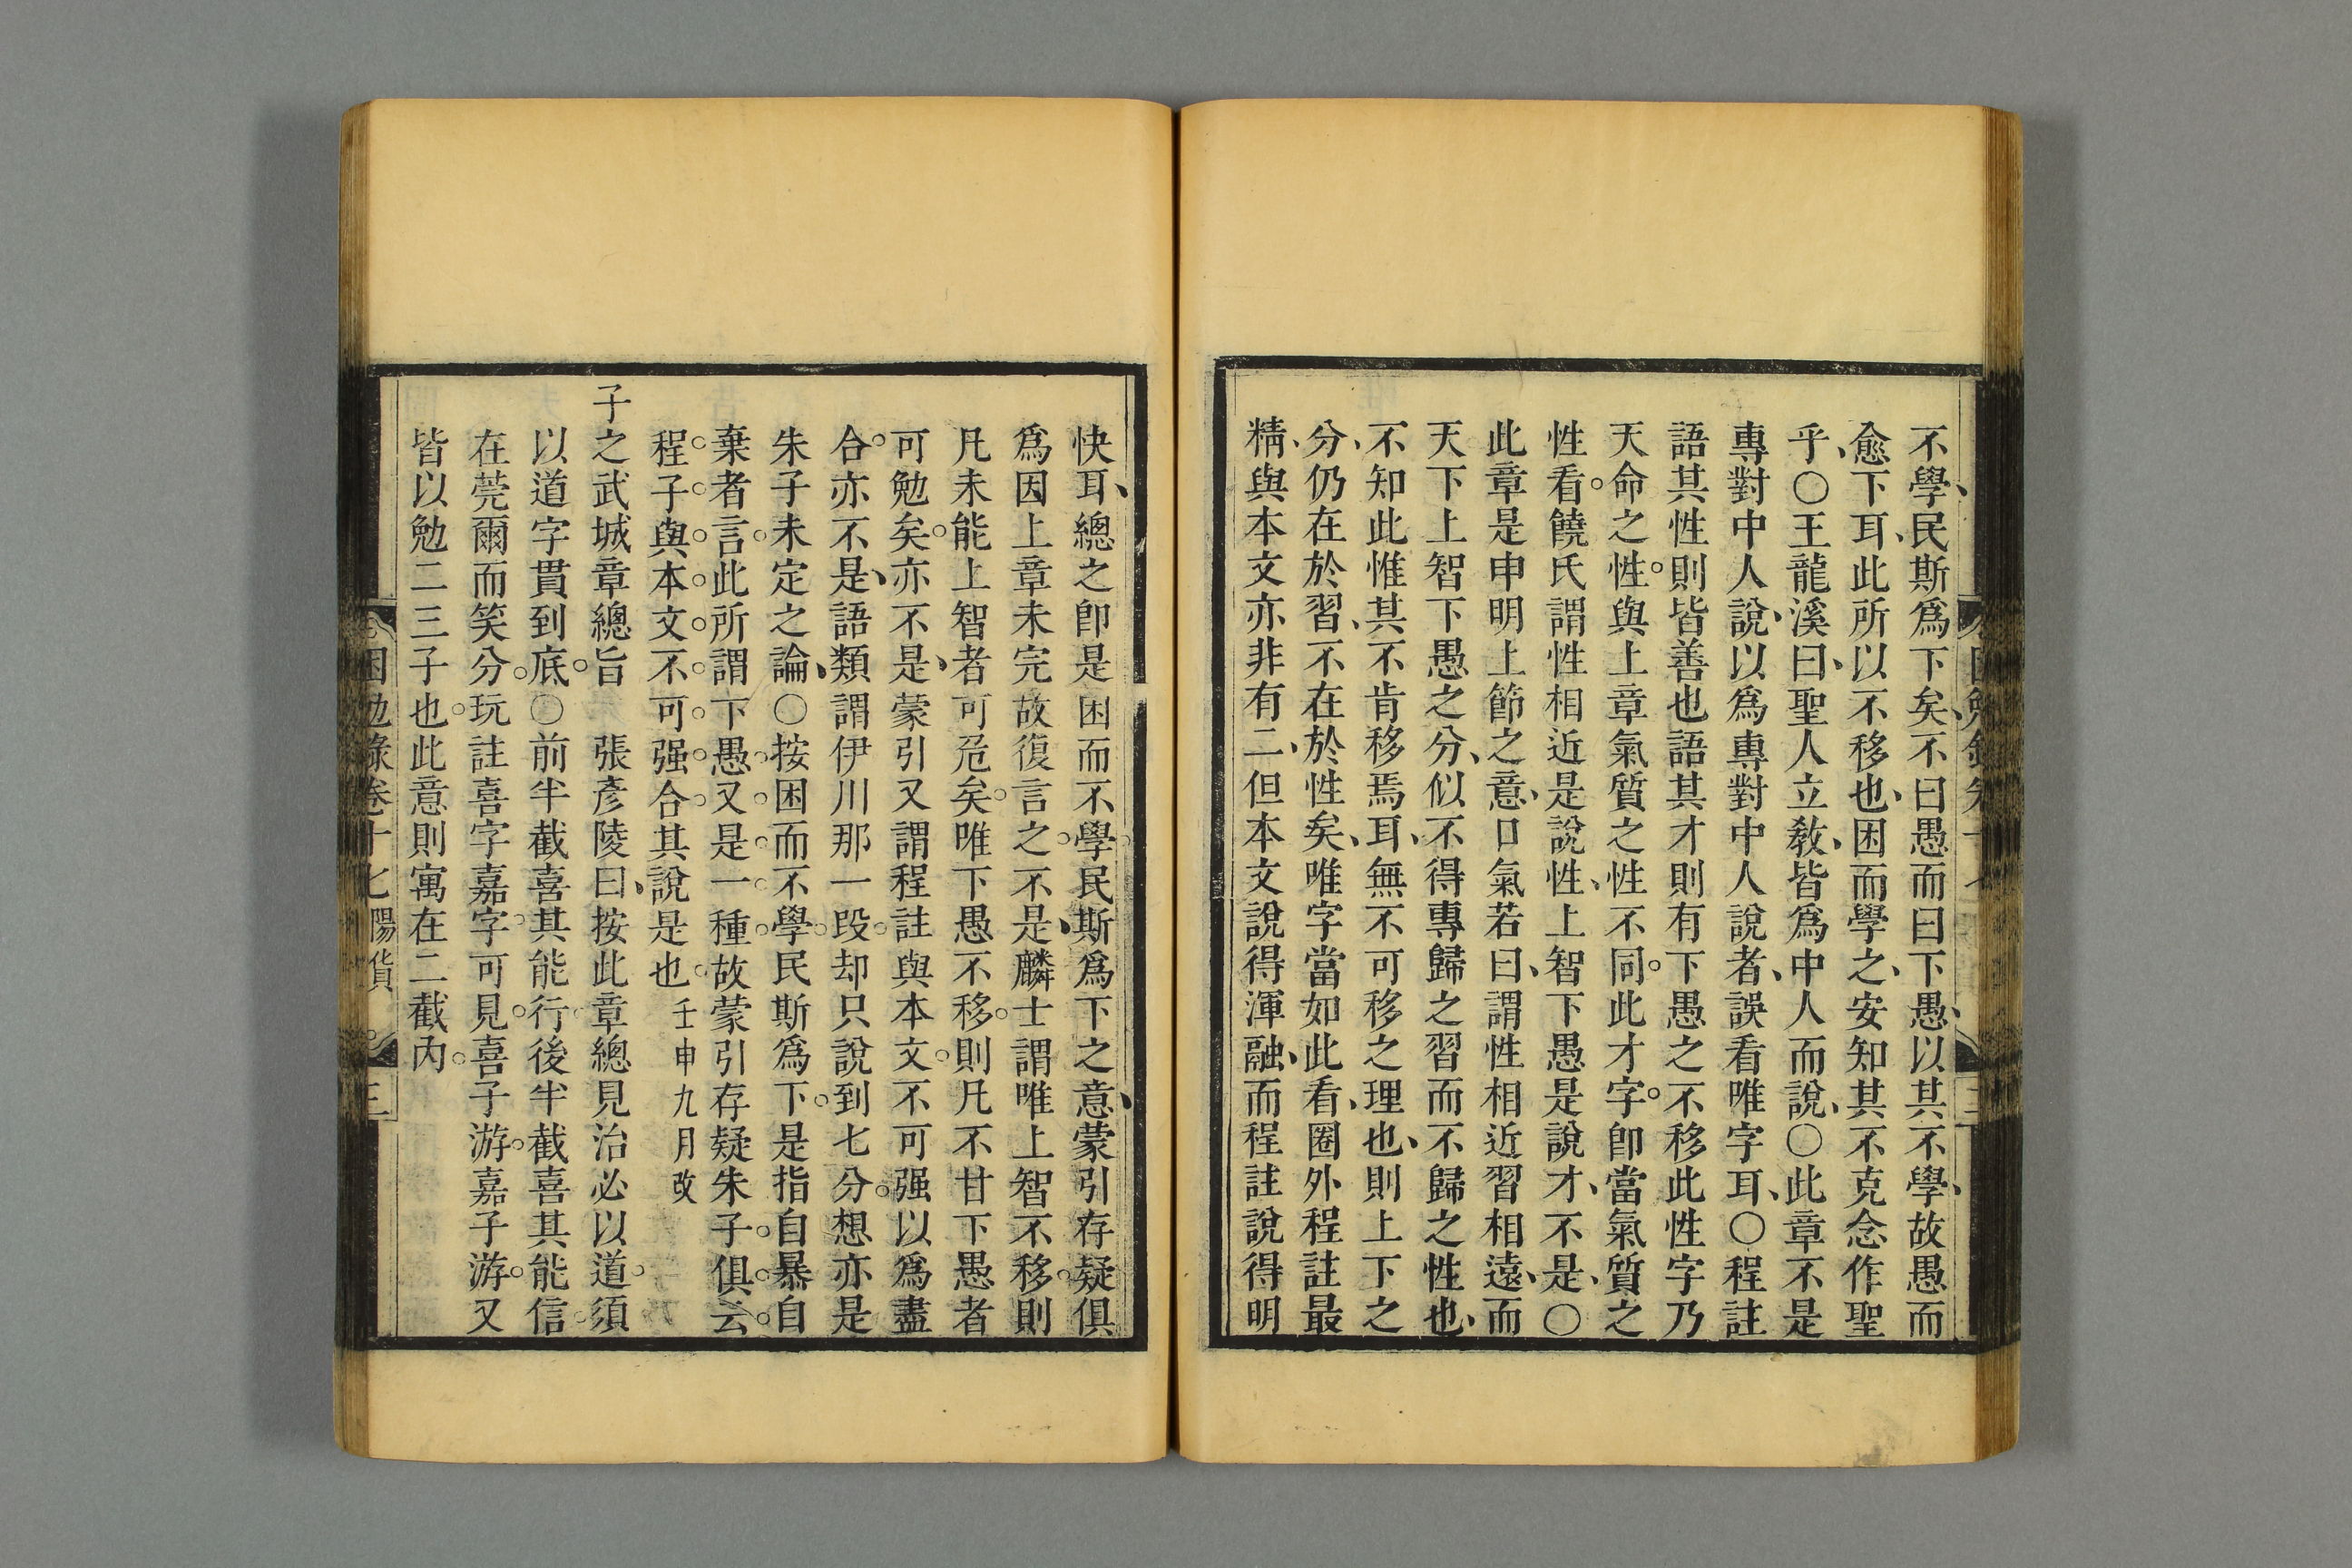 不學民斯爲下矣不曰愚而曰下愚以其不學故愚而
愈下耳此所以不移也困而學之安知其不克念作聖
乎〇王龍溪曰聖人立教皆爲中人而說〇此章不是
專對中人說以爲專對中人說者誤看唯字耳〇程註
語其性則皆善也語其才則有下愚之不移此性字乃
天命之性與上章氣質之性不同此才字卽當氣質之
性看饒氏謂性相近是說性上智下愚是說才不是〇
此章是申明上節之意口氣若曰謂性相近習相遠而
天下上智下愚之分似不得專歸之習而不歸之性也
不知此惟其不肯移焉耳無不可移之理也則上下之
分仍在於習不在於性矣唯字當如此看圈外程註最
精與本文亦非有二但本文說得渾融而程註說得明
快耳總之卽是困而不學民斯爲下之意蒙引存疑俱
爲因上章未完故復言之不是麟士謂唯上智不移則
凡未能上智者可危矣唯下愚不移則凡不甘下愚者
可勉矣亦不是蒙引又謂程註與本文不可强以爲盡
合亦不是語類謂伊川那一段却只說到七分想亦是
朱子未定之論〇按困而不學民斯爲下是指自暴自
棄者言此所謂下愚又是一種故蒙引存疑朱子俱云
程子與本文不可强合其說是也壬申九月改
子之武城章總旨 張彥陵曰按此章總見治必以道須
以道字貫到底〇前半截喜其能行後半截喜其能信
在莞爾而笑分玩註喜字嘉字可見喜子游嘉子游又
皆以勉二三子也此意則寓在二截內
困勉錄卷十七 陽貨 三